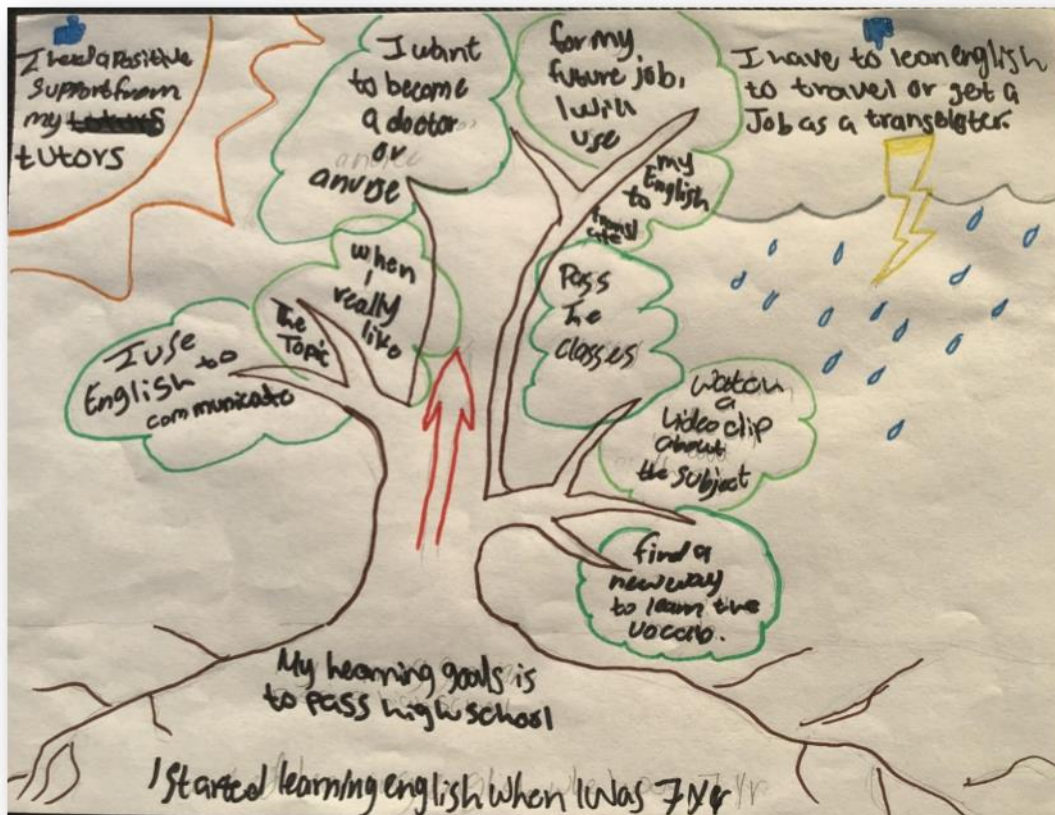 I need a positive
support from
my tutors
tutors
I want
to become
a doctor
or
a nurse
for my
future job,
I will
use
my
English
to
translate
I have to lean english
to travel or get a
Job as a translater.
when
I
really
like
the
Topic
I use
English to
communicate
Pass
the
classes
watch
a
video clip
about
the subject
find a
new way
to learn the
vocab.
My learning goals is
to pass high school
I started learning english when I was 7 yr